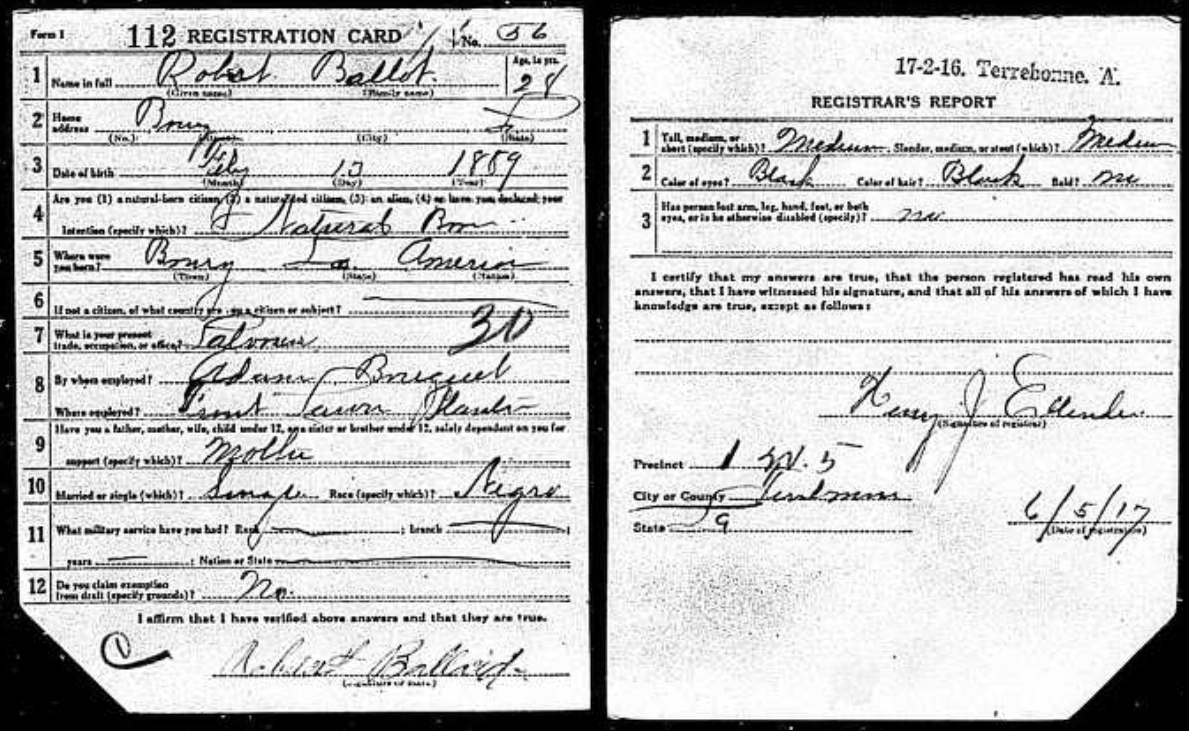 Form 1 112 REGISTRATION CARD No. 56
1 Name in full Robert Ballot. Age, in yrs. 28
(Given name) (Family name)
2 Home address Bourg La
(No.) (Street) (City) (State)
3 Date of birth Feby 13 1889
(Month) (Day) (Year)
4 Are you (1) a natural-born citizen, (2) a naturalized citizen, (3) an alien, (4) or have you declared your
intention (specify which)? Natural Born
5 Where were you born? Bourg La America
(Town) (State) (Nation)
6 If not a citizen, of what country are you a citizen or subject?
7 What is your present trade, occupation, or office? 30
8 By whom employed? Adam Bourquet
Where employed?
9 Have you a father, mother, wife, child under 12, or a sister or brother under 12, solely dependent on you for
support (specify which)?
10 Married or single (which)? Single Race (specify which)? Negro
11 What military service have you had? Rank ; branch ;
years ; Nation or State
12 Do you claim exemption from draft (specify grounds)? No.
I affirm that I have verified above answers and that they are true.
(Signature or mark)
17-2-16. Terrebonne. A.
REGISTRAR'S REPORT
1 Tall, medium, or short (specify which)? Medium Slender, medium, or stout (which)? Medium
2 Color of eyes? Black Color of hair? Black Bald? no
3 Has person lost arm, leg, hand, foot, or both eyes, or is he otherwise disabled (specify)? no
I certify that my answers are true, that the person registered has read his own
answers, that I have witnessed his signature, and that all of his answers of which I have
knowledge are true, except as follows:
Henry J Ellender
(Signature of registrar)
Precinct 1 W. 5
City or County Terrebonne
State La
6/5/17
(Date of registration)